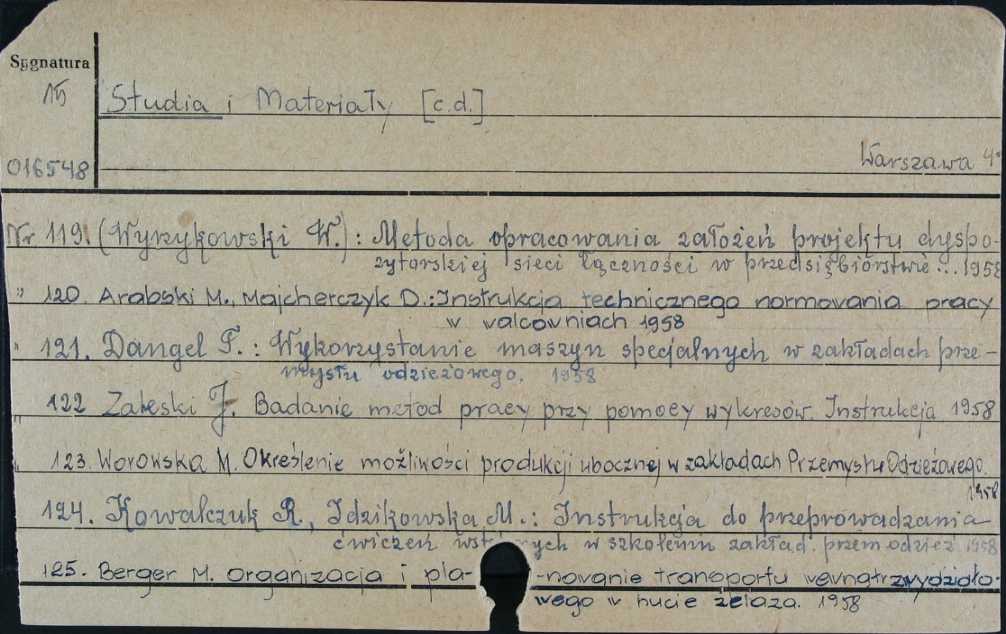 Sygnatura
Studia i Materiały [c.d.]
016548
Warszawa 4.
Nr 119. (Wyrzykowski W.): Metoda opracowania założeń projektu dyspo-
zytorskiej sieci łączności w przedsiębiorstwie... 1958
" 120. Arabski M., Majcherczyk D.: Instrukcja technicznego normowania pracy
w walcowniach 1958
" 121. Dangel F.: Wykorzystanie maszyn specjalnych w zakładach prze-
mysłu odzieżowego. 1958
" 122 Zaleski J. Badanie metod pracy przy pomocy wykresów. Instrukcja 1958
" 123. Worowska M. Określenie możliwości produkcji ubocznej w zakładach Przemysłu Odzieżowego.
1958
124. Kowalczuk R., Idzikowska M.: Instrukcja do przeprowadzania
ćwiczeń wst ych w szkoleniu zakład. przem. odzież 1958
125. Berger M. Organizacja i pla- -nowanie transportu wewnątrzwydziało-
wego w hucie żelaza. 1958